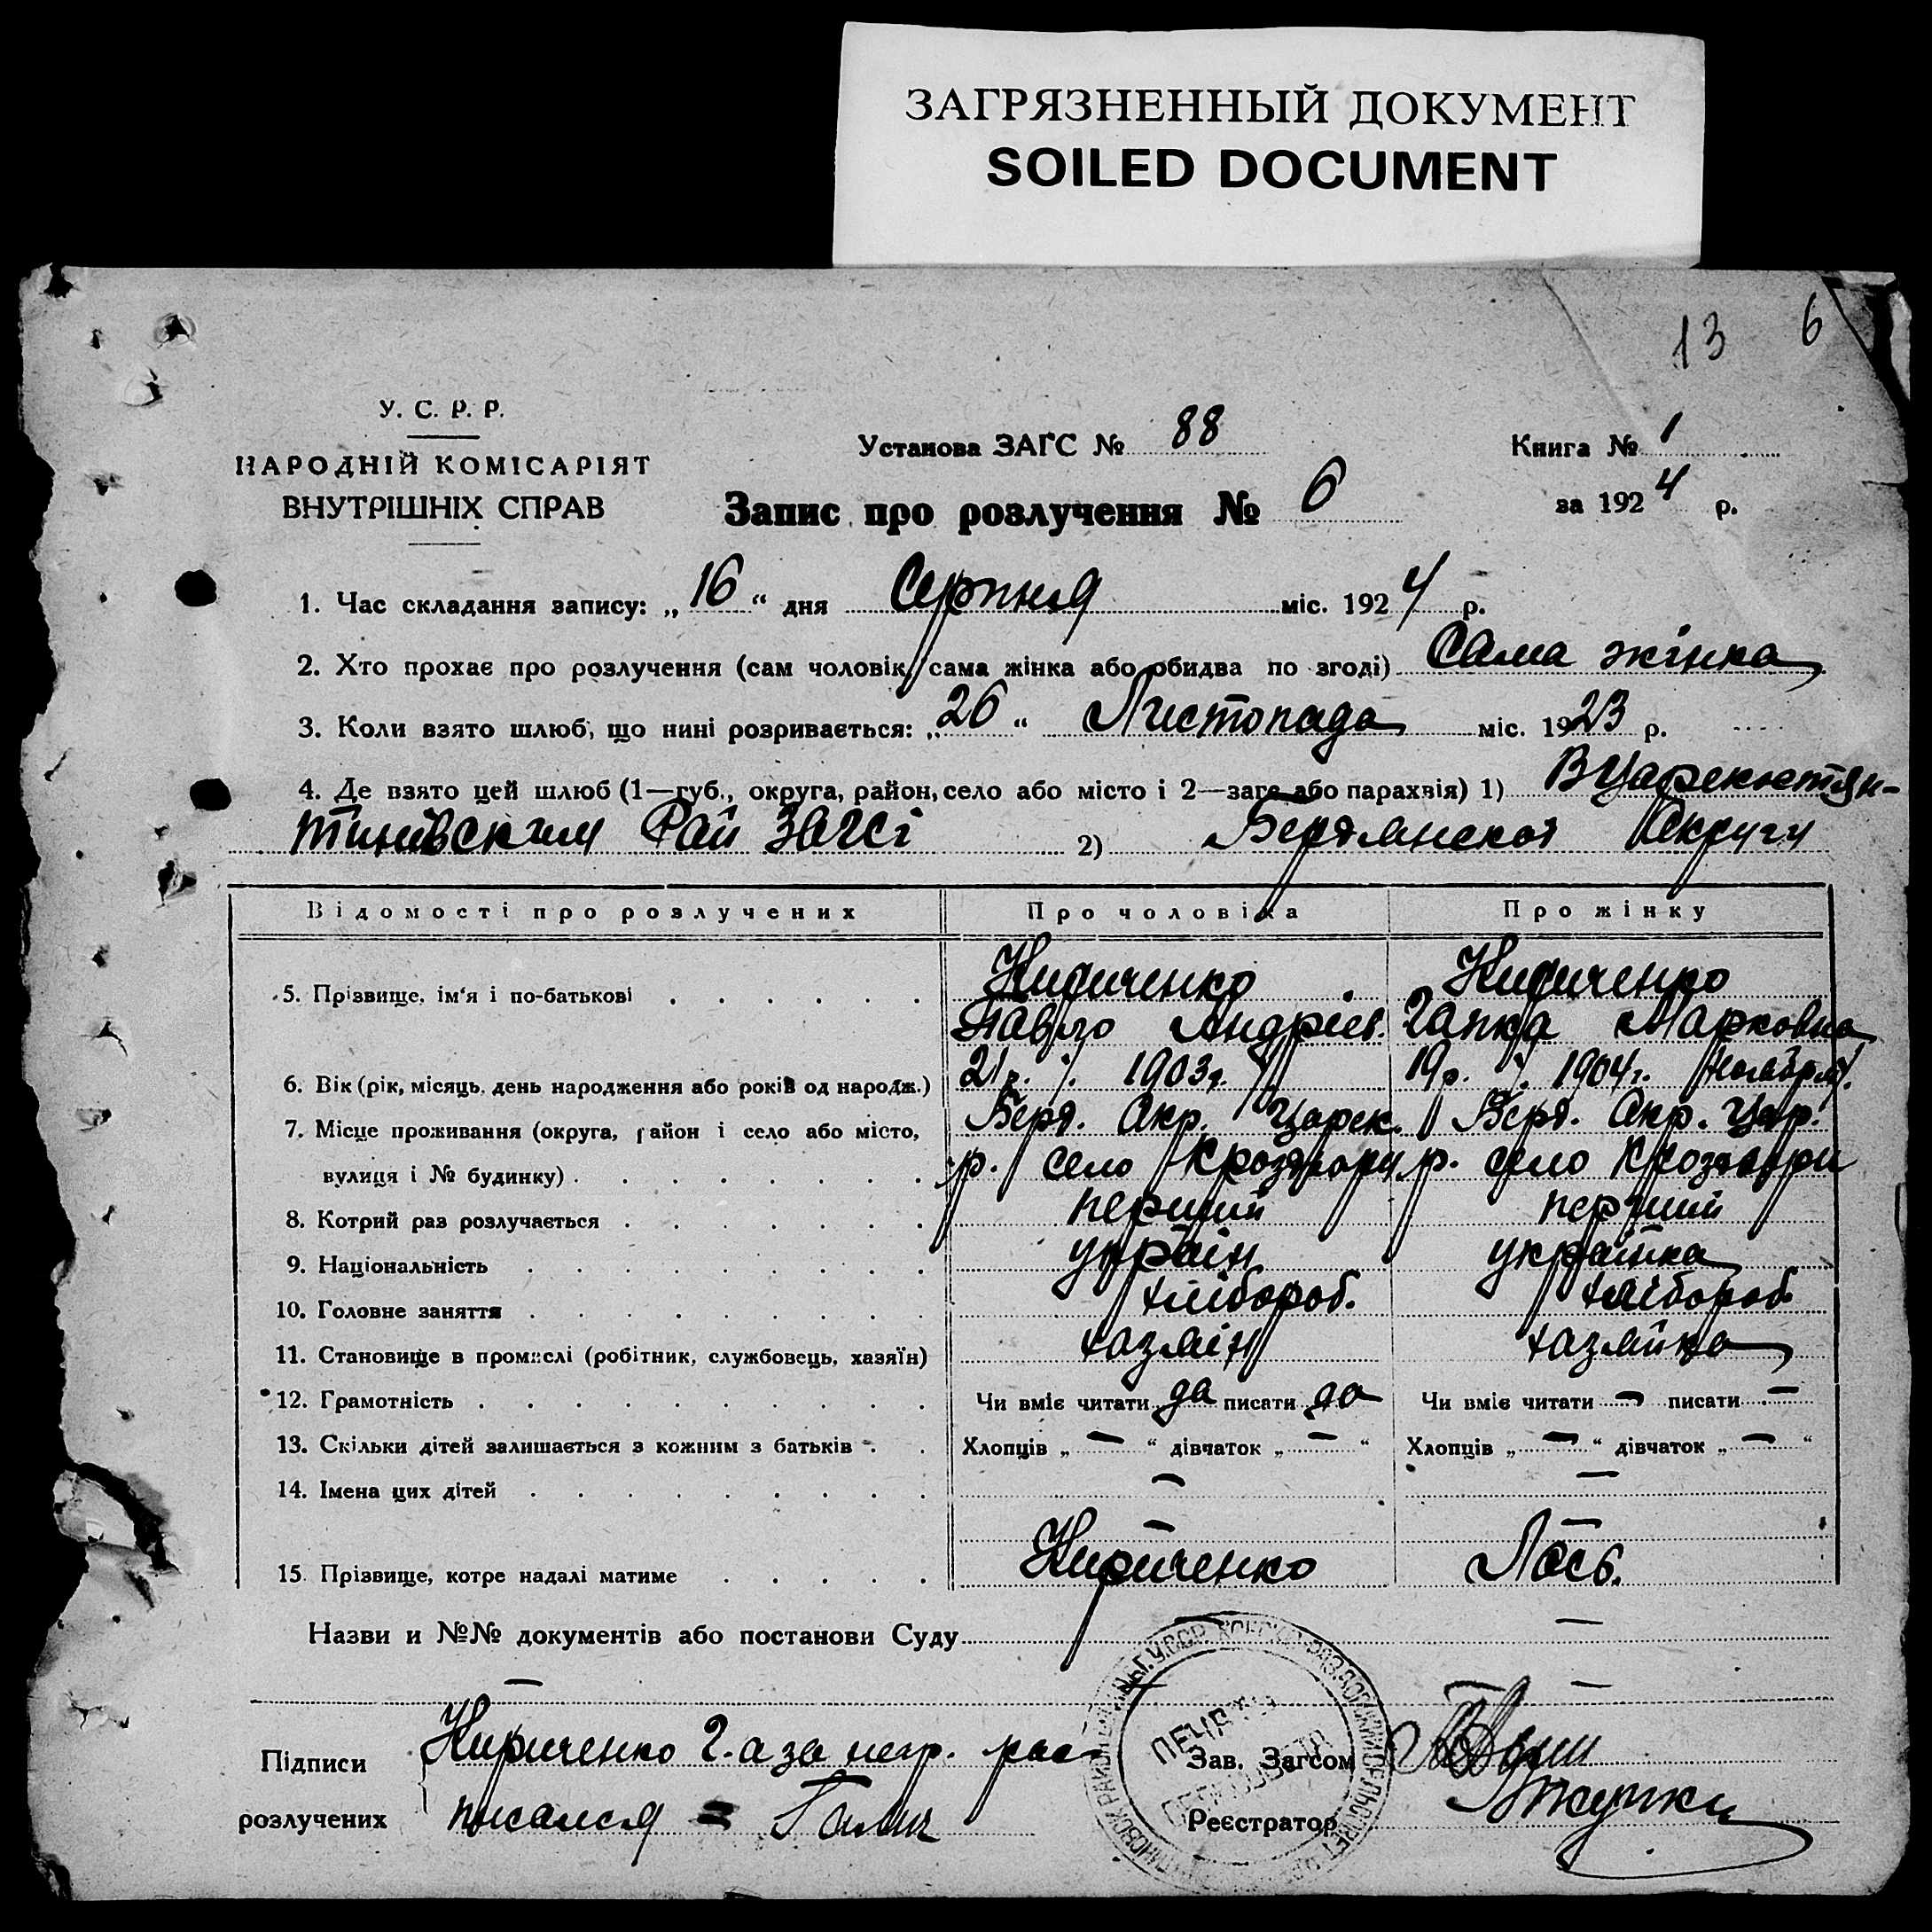 ЗАГРЯЗНЕННЫЙ ДОКУМЕНТ
SOILED DOCUMENT
13 6
У. С. Р. Р.
НАРОДНІЙ КОМІСАРІЯТ
ВНУТРІШНІХ СПРАВ
Установа ЗАГС № 88
Книга № 1
Запис про розлучення № 6
за 1924 р.
1. Час складання запису: „16“ дня Серпня міс. 1924 р.
2. Хто прохає про розлучення (сам чоловік, сама жінка або обидва по згоді) Сама жінка
3. Коли взято шлюб, що нині розривається: „26“ Листопада міс. 1923 р.
4. Де взято цей шлюб (1—губ., округа, район, село або місто і 2—загс або парахвія) 1)
Рай ЗАГСі 2) Округи
Відомості про розлучених Про чоловіка Про жінку
5. Прізвище, ім'я і по-батькові Кириченко Кириченко
Павло Андріев. Гапка Марковна
6. Вік (рік, місяць, день народження або років од народж.) 21 р. 1903 г. 19 р. 1904 г.
7. Місце проживання (округа, район і село або місто, Берд. Окр. Царек. Берд. Окр. Цар.
вулиця і № будинку) р. село р. село
8. Котрий раз розлучається перший перший
9. Національність україн українка
10. Головне заняття хлібороб. хлібороб.
11. Становище в промислі (робітник, службовець, хазяїн) хазяін хазяйка
12. Грамотність Чи вміє читати да писати да Чи вміє читати — писати —
13. Скільки дітей залишається з кожним з батьків Хлопців „ — “ дівчаток „ — “ Хлопців „ — “ дівчаток „ — “
14. Імена цих дітей — —
— —
15. Прізвище, котре надалі матиме Кириченко Лось.
Назви и №№ документів або постанови Суду — —
— —
Підписи Кириченко Г. а за негр. рас- Зав. Загсом
розлучених писался = Реєстратор
ПЕЧАТЬ